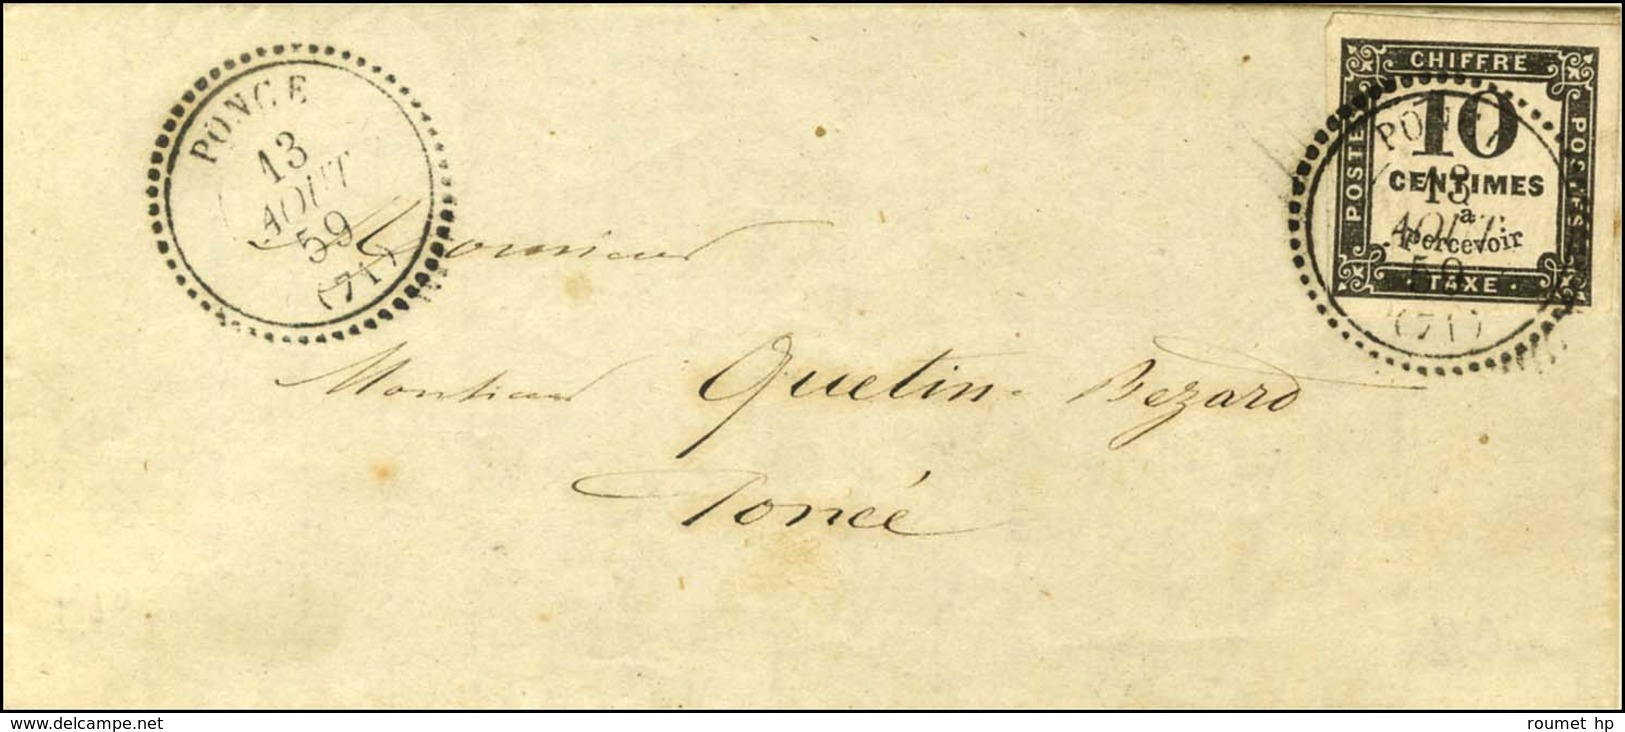 PONCE
13
AOUT
59
(71)
CHIFFRE
10
CENTIMES
à
percevoir
TAXE
POSTE
POSTES
PONCE
13
AOUT
59
(71)
Monsieur
Monsieur Quetin-Bezard
Poncé
www.delcampe.net
roumet hp